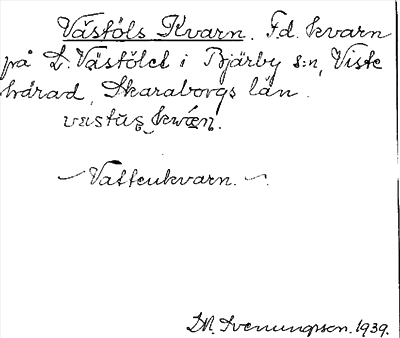 Västöls Kvarn. F.d. kvarn
på L. Västölet i Bjärby s:n, Viste
härad, Skaraborgs län.
vastas kwæn.
~ Vattenkvarn. ~
Svenungsson. 1939.